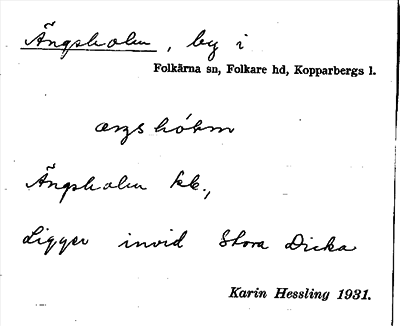 Ängsholm, by i
Folkärna sn, Folkare hd, Kopparbergs l.
ängshólm
Ängsholm kb.,
Ligger invid Stora Dicka
Karin Hessling 1931.